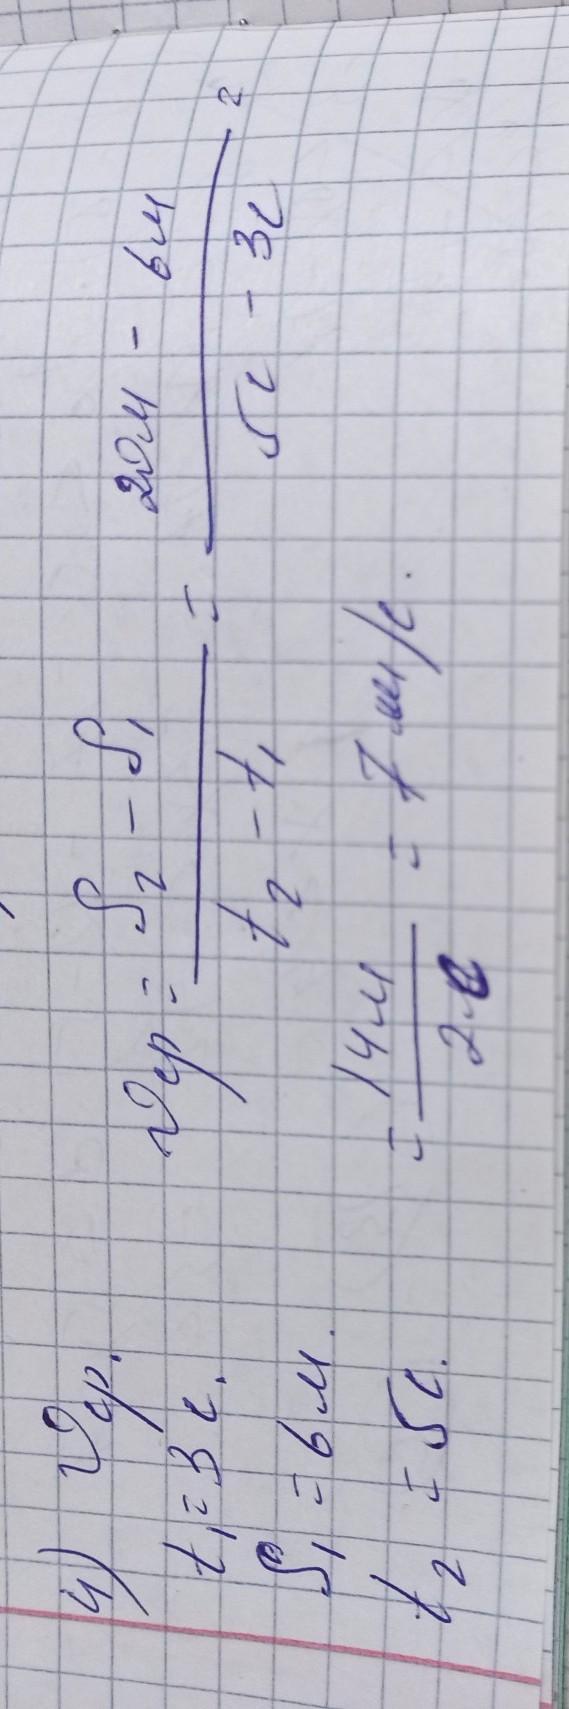 4) Vср.
t₁ = 3 с.
S₁ = 6 м.
t₂ = 5 с.
Vср = (S₂ - S₁) / (t₂ - t₁) = (20м - 6м) / (5с - 3с) =
= 14м / 2с = 7 м/с.